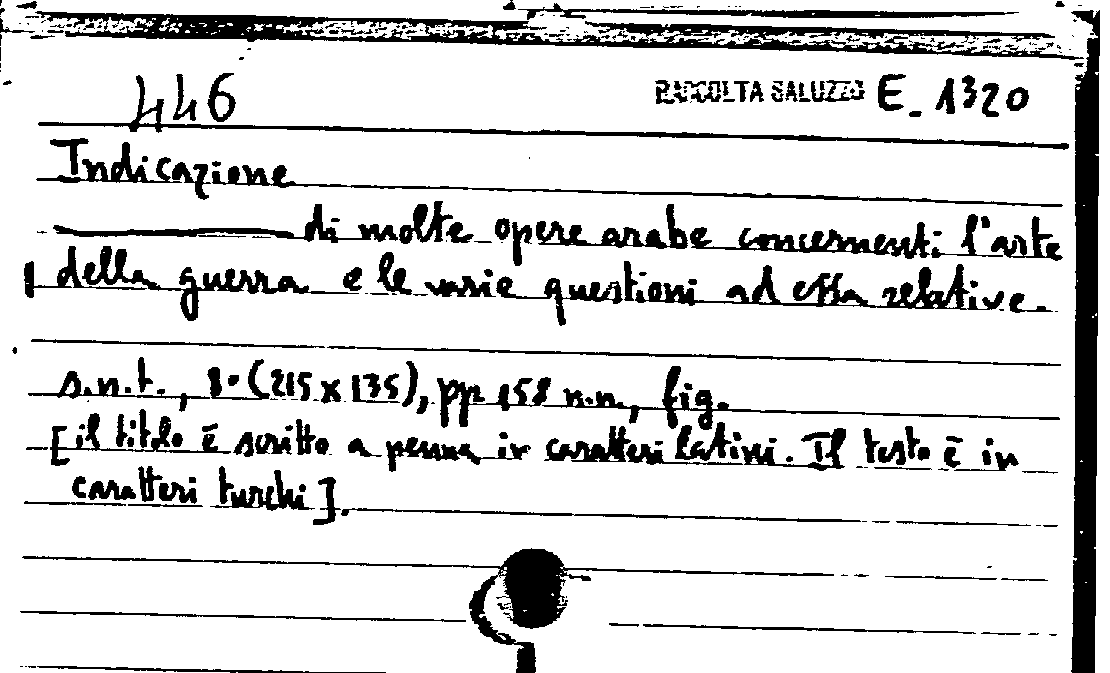 446 RACCOLTA SALUZZO E. 1320
Indicazione
di molte opere arabe concernenti l'arte
della guerra e le varie questioni ad essa relative.
s.n.t., 8° (215 x 135), pp 158 n.n., fig.
[il titolo è scritto a penna in caratteri latini. Il testo è in
caratteri turchi].